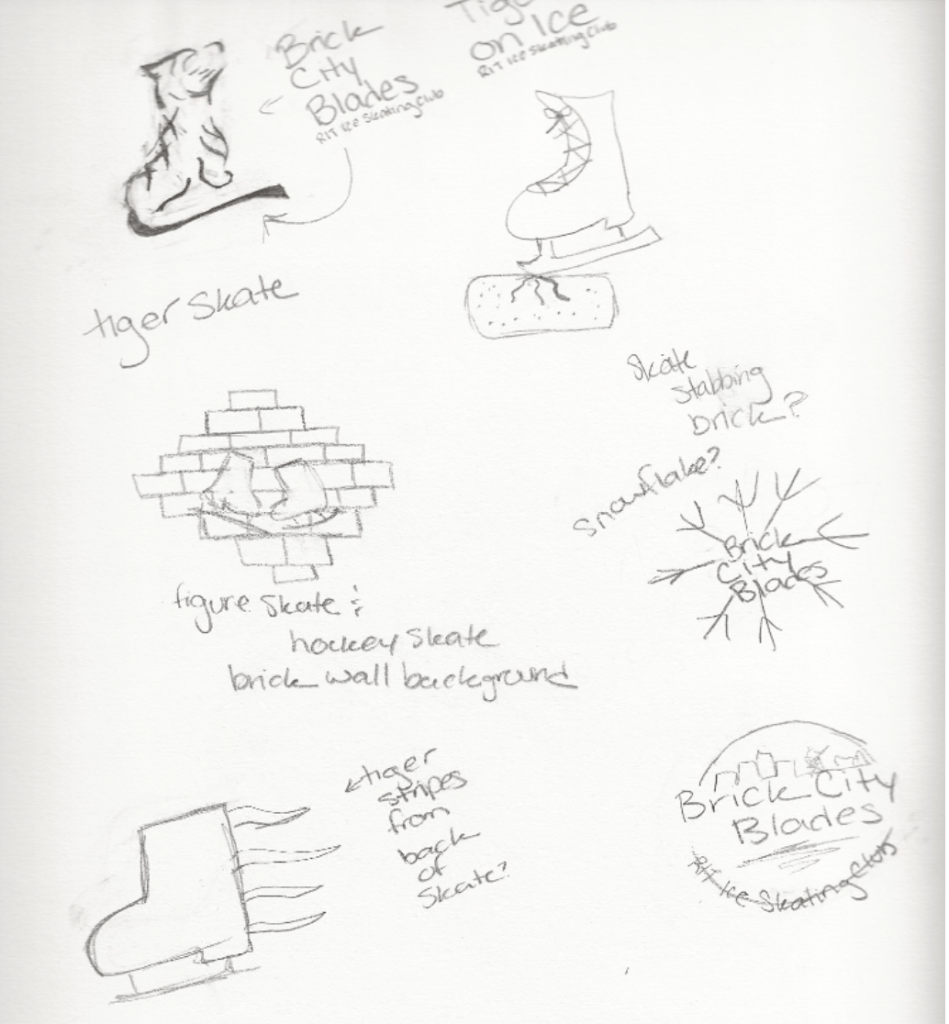 Brick
City
Blades
RIT Ice Skating Club
on Ice
RIT Ice Skating Club
tiger skate
Skate
stabbing
brick?
snowflake?
Brick
City
Blades
figure skate &
hockey skate
brick wall background
tiger
stripes
from
back
of
skate?
Brick City
Blades
RIT Ice Skating Club